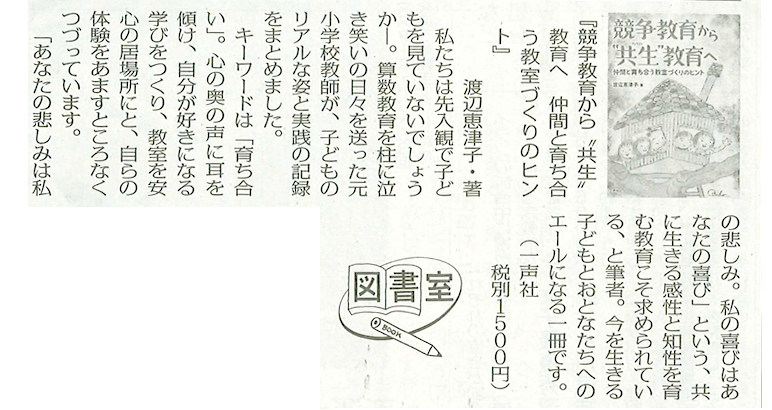 競争教育から
"共生"教育へ
仲間と育ち合う教室づくりのヒント
渡辺恵津子・著
『競争教育から〝共生〟
教育へ 仲間と育ち合
う教室づくりのヒン
ト』
渡辺恵津子・著
私たちは先入観で子ど
もを見ていないでしょう
かー。算数教育を柱に泣
き笑いの日々を送った元
小学校教師が、子どもの
リアルな姿と実践の記録
をまとめました。
キーワードは「育ち合
い」。心の奥の声に耳を
傾け、自分が好きになる
学びをつくり、教室を安
心の居場所にと、自らの
体験をあますところなく
つづっています。
「あなたの悲しみは私
の悲しみ。私の喜びはあ
なたの喜び」という、共
に生きる感性と知性を育
む教育こそ求められてい
る、と筆者。今を生きる
子どもとおとなたちへの
エールになる一冊です。
(一声社
税別1500円)
図書室
BOOK